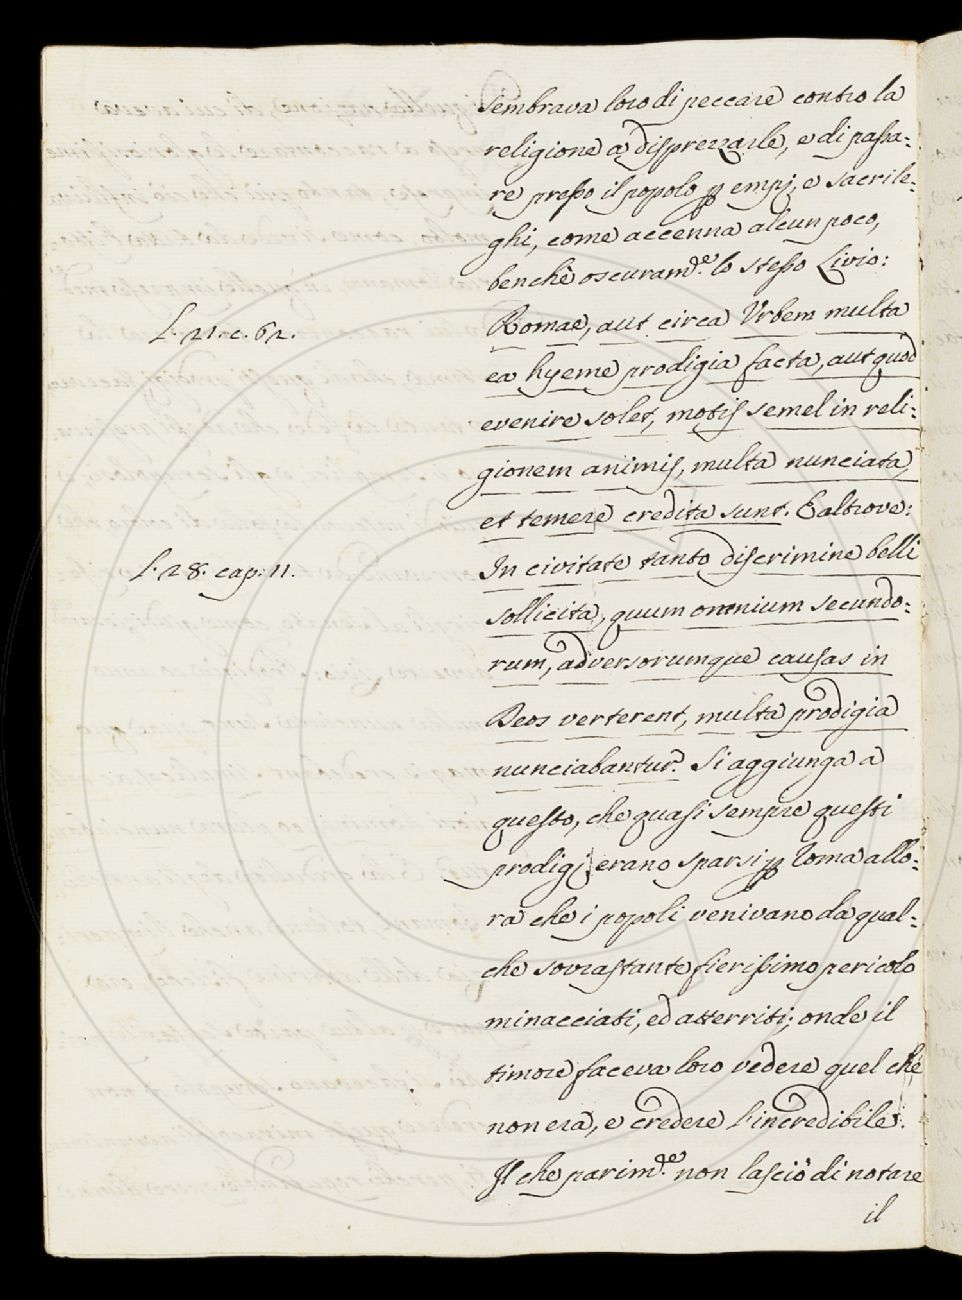 sembrava loro di peccare contro la
religione a disprezzarle, e di passa:
re presso il popolo p empj, e sacrile:
ghi, come accenna alcun poco,
benchè oscuram.te lo stesso Livio:
L. 21. c. 62.
Romae, aut circa Urbem multa
ea hyeme prodigia facta, aut quod
evenire solet, motis semel in reli:
gionem animis, multa nunciata,
et temere credita sunt. E altrove:
L. 28. cap. 11.
In civitate tanto discrimine belli
sollicita, quum omnium secundo:
rum, adversorumque causas in
Deos verterent, multa prodigia
nunciabantur. Si aggiunga a
questo, che quasi sempre questi
prodigj erano sparsi p Roma allo:
ra che i popoli venivano da qual:
che sovrastante fierissimo pericolo
minacciati, ed atterriti; onde il
timore faceva loro vedere quel che
non era, e credere l'incredibile.
Il che parim.te non lasciò di notare
il